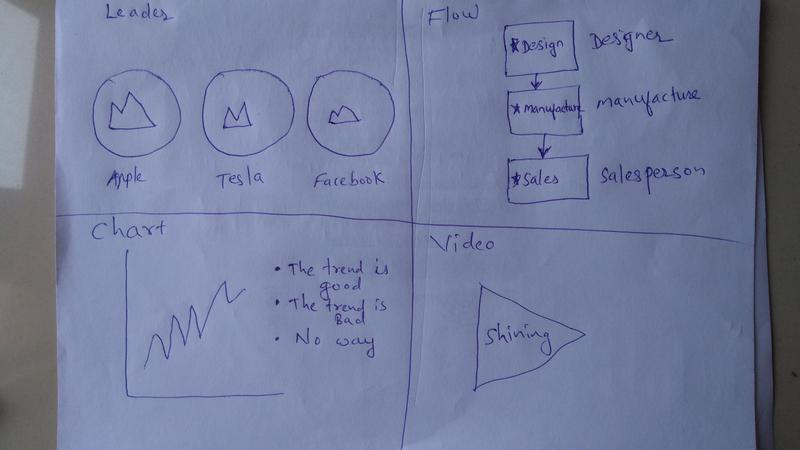 Leader
Apple
Tesla
Facebook
Flow
*Design
Designer
*Manufacture
manufacture
*Sales
Salesperson
Chart
• The trend is
good
• The trend is
Bad
• No way
Video
Shining